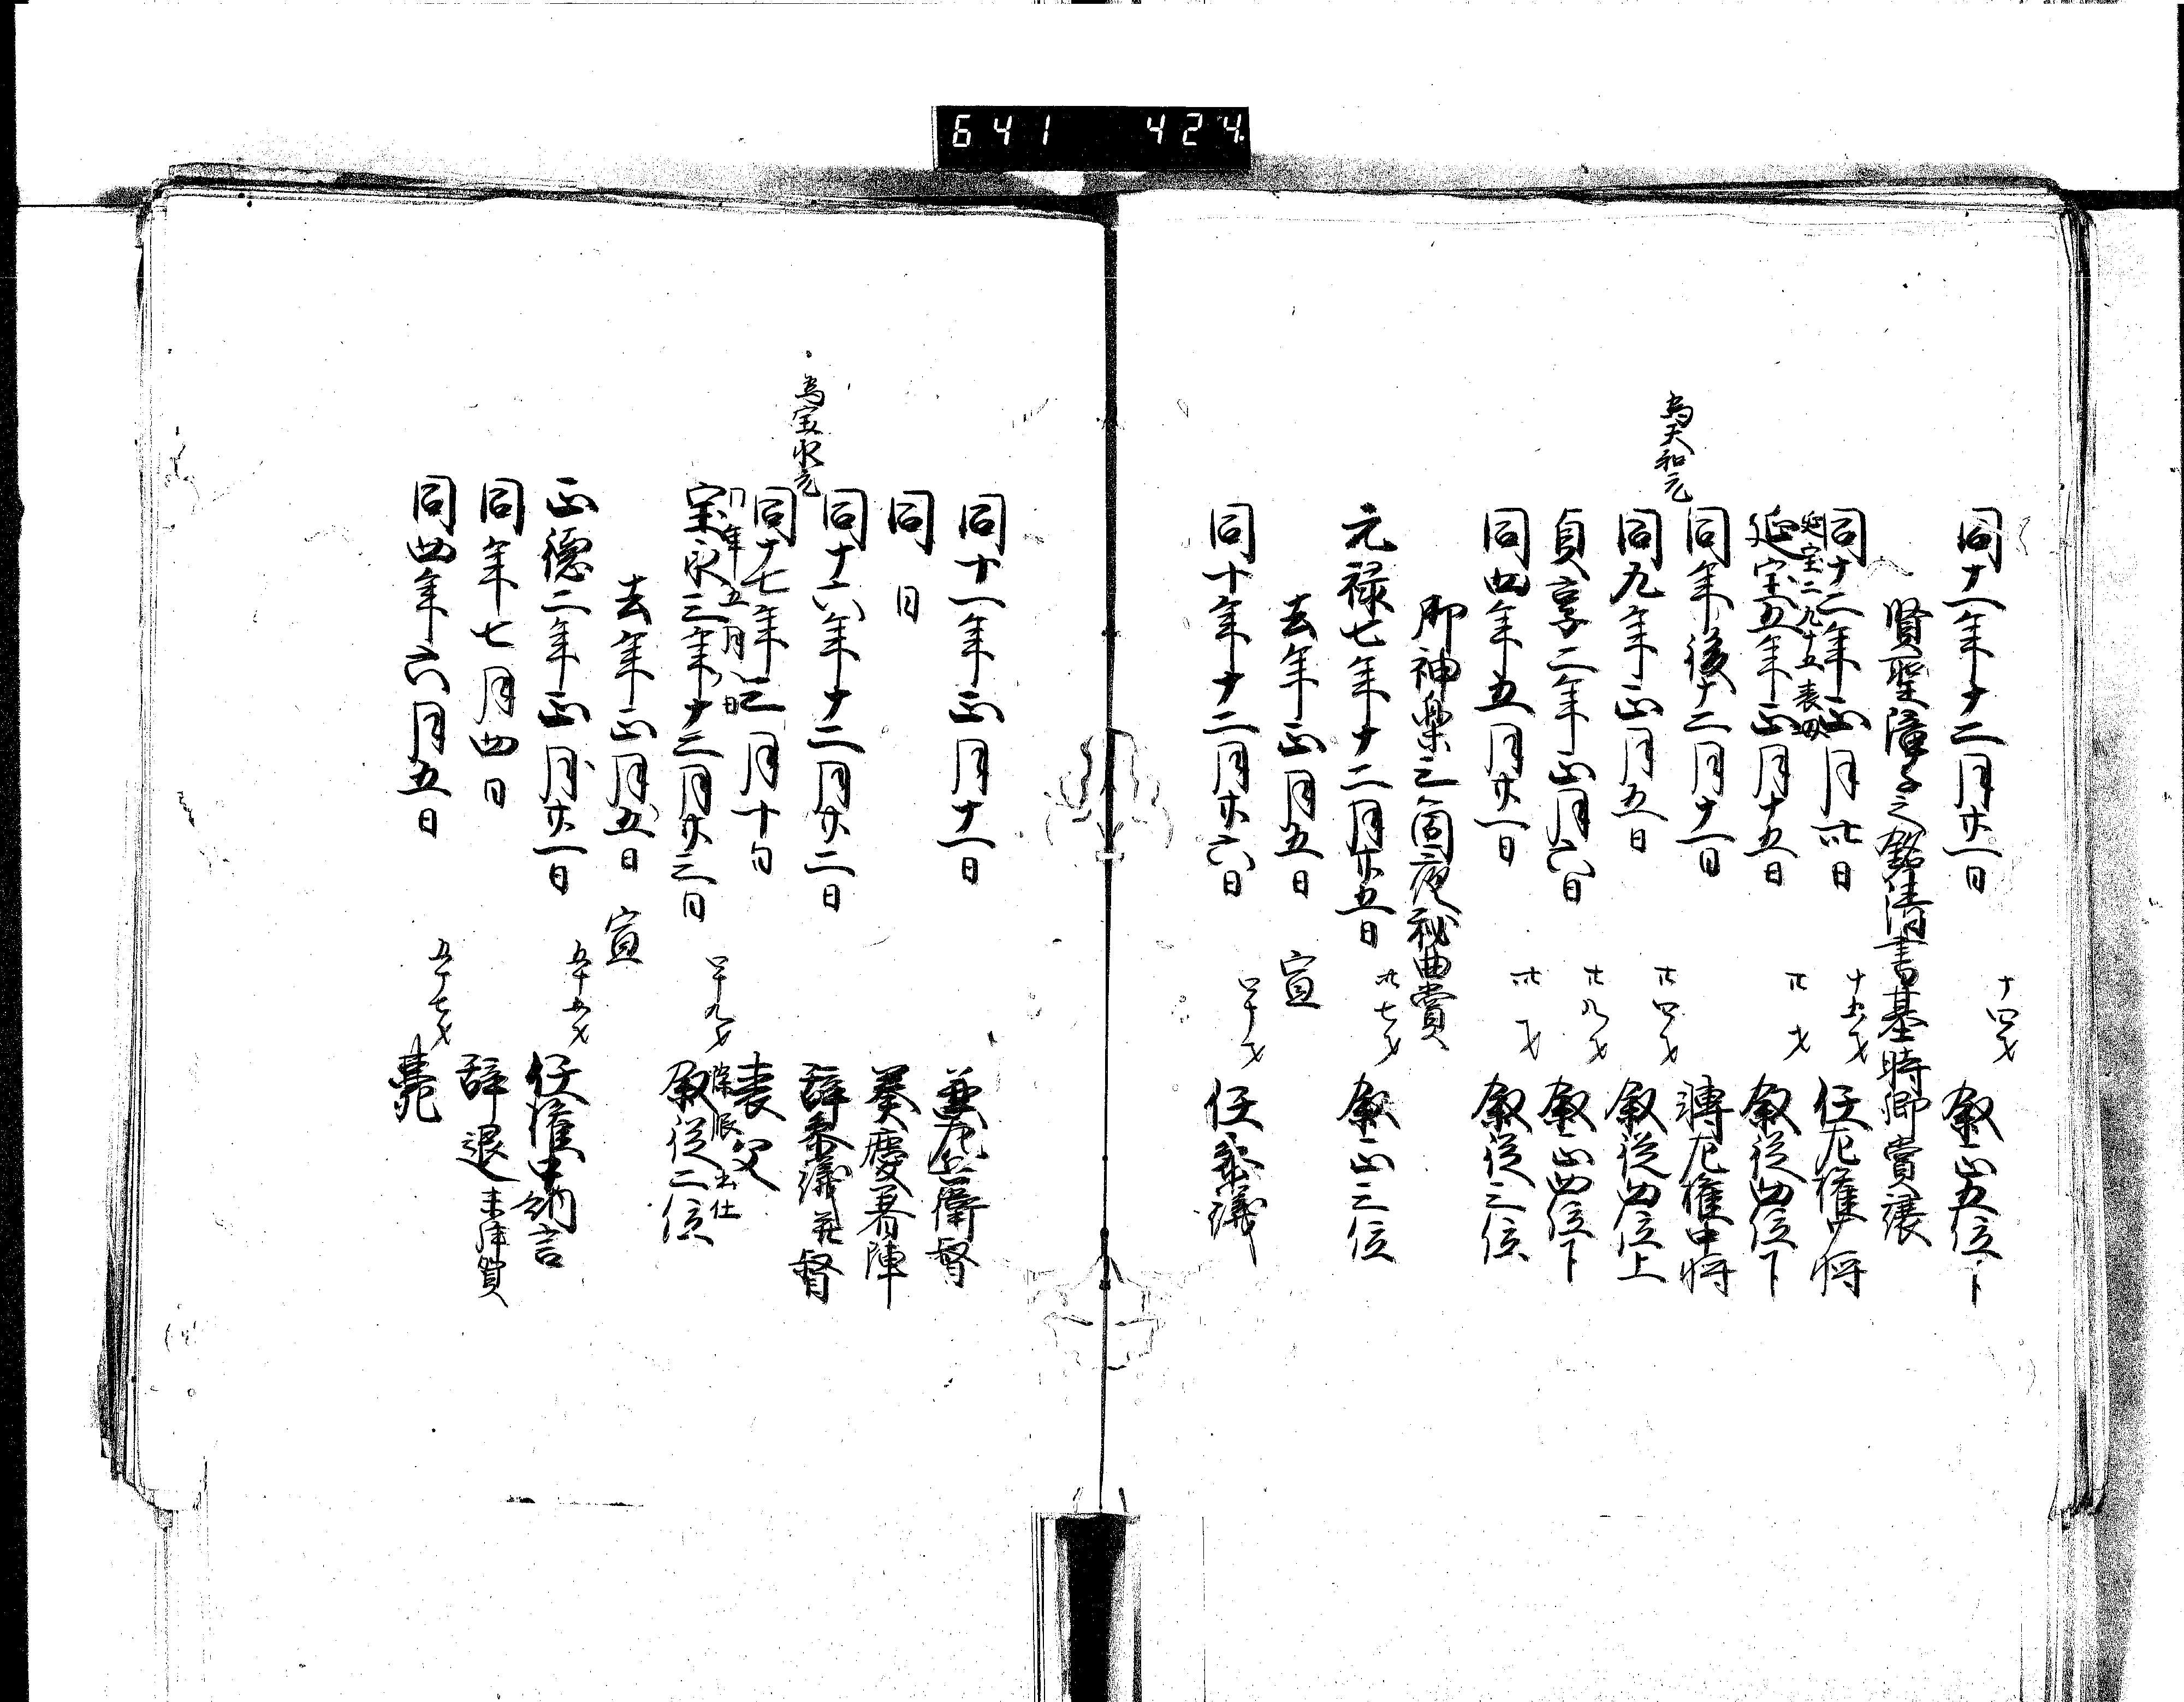 641 424
同十一年十二月廿一日 十四才 叙正五位下
賢聖障子之銘清書基時卿賞譲
同十二年正月廿八日 十五才 任左権少将
延宝二九十五喪母
延宝五年正月十五日 十九才 叙従四位下
同年後十二月十一日 廿才 転左権中将
為天和元
同九年正月五日 廿四才 叙従四位上
貞享二年正月六日 廿九才 叙正四位下
同四年五月廿一日 卅才 叙従三位
御神楽三箇夜秘曲賞
元禄七年十二月廿五日 卅七才 叙正三位
去年正月五日 宣
同十年十二月廿六日 四十才 任参議
同十一年正月十一日 兼左兵衛督
同日 奏慶着陣
同十六年十二月廿二日 辞参議并督
為宝永元
同十七年三月十日 喪父
同年五月八日 除服出仕
宝永三年十二月廿三日 四十九才 叙従二位
去年正月五日 宣
正徳二年正月廿一日 五十五才 任権中納言
同年七月四日 辞退 未拝賀
同四年六月五日 五十七才 薨